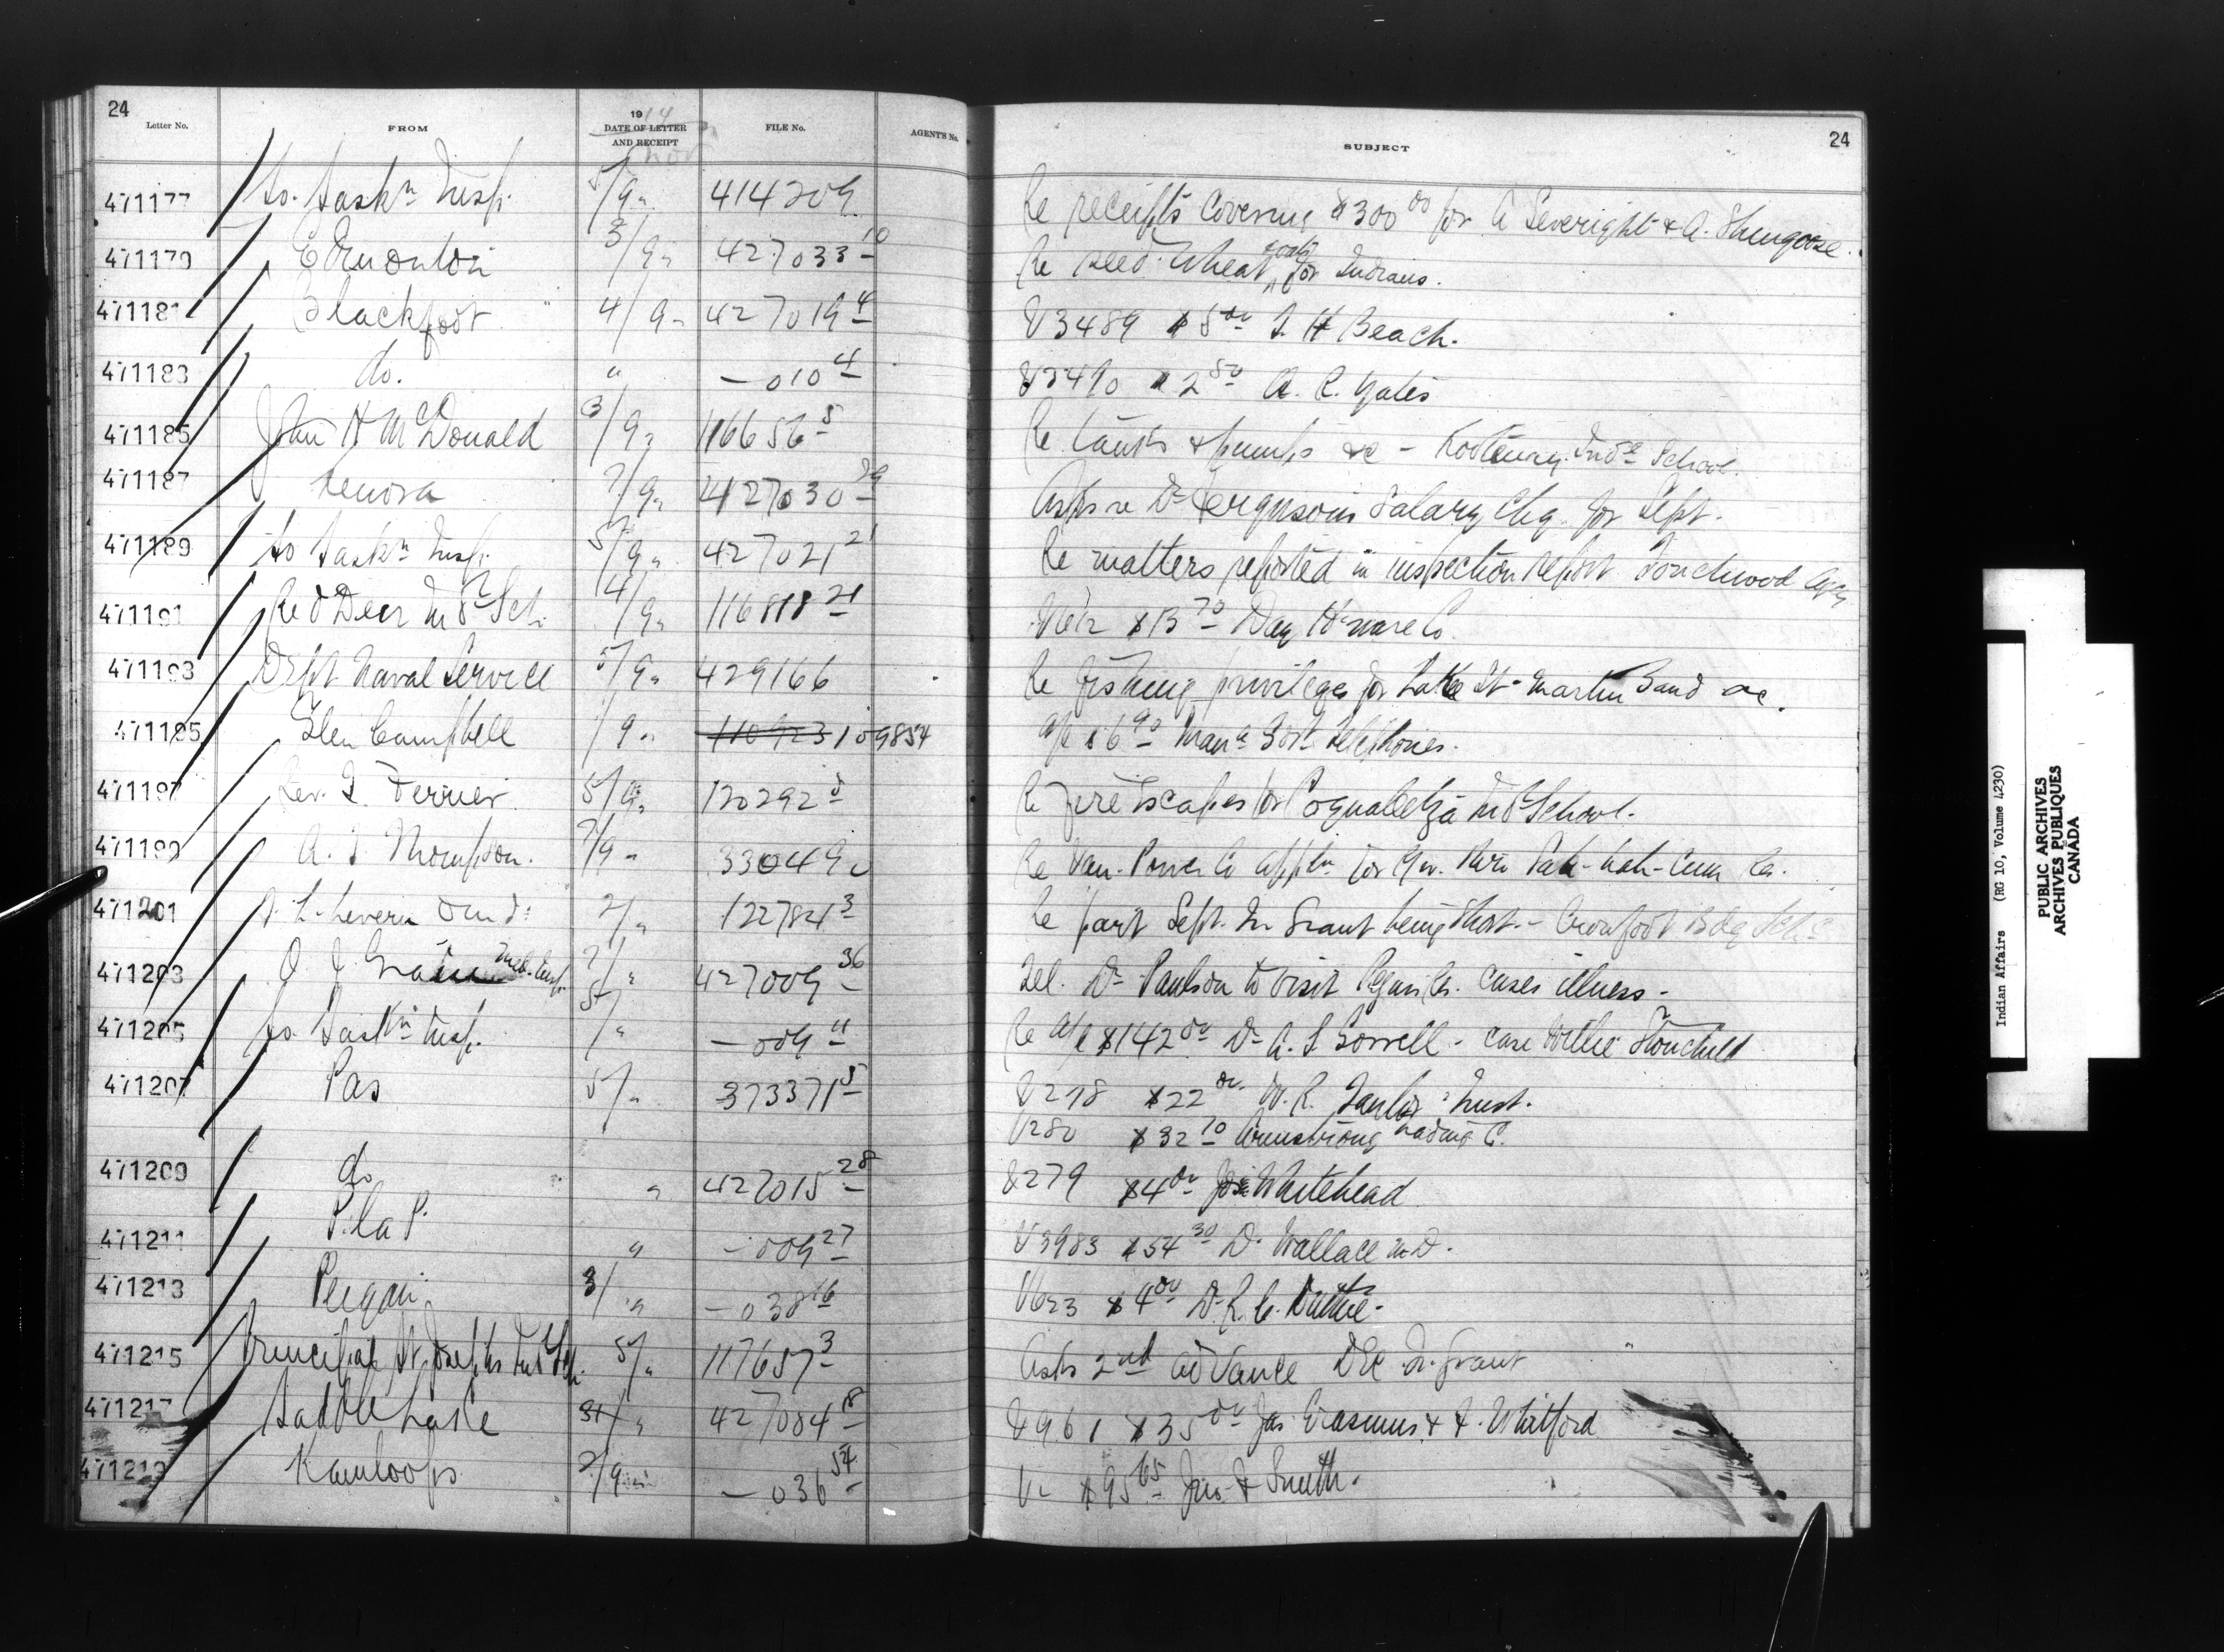 24
Letter No. FROM 1914 DATE OF LETTER AND RECEIPT FILE No. AGENT'S No. SUBJECT 24
Nov
471177 So. Saskn Insp. 5/9 " 414209 Re receipts covering $300 00 for A Severight & A. Shingoose.
471179 Edmonton 3/9 " 427033 10 Re seed wheat & oats for Indians.
471181 Blackfoot 4/9 " 427019 4 V3489 $5 00 J. H Beach.
471183 do. " — 010 4 V3490 $2 50 A. R. Yates
471185 John H McDonald 3/9 " 116656 5 Re tanks & pumps &c - Kootenay Indl School.
471187 Kenora 7/9 " 427030 29 Asks re Dr Ferguson's Salary Chq. for Sept.
471189 So Saskn Insp. 5/9 " 427021 21 Re matters reported in inspection report Touchwood Agcy
471191 Red Deer Indl Sch. 4/9 " 116818 21 V612 $13 70 Day H'ware Co.
471193 Dept Naval Service 5/9 " 429166 Re fishing privileges for Lake St. Martin Band &c.
471195 Glen Campbell /9 " 110923 109854 a/c $6 90 Mana Govt Telephones.
471197 Rev. J. Ferrier 5/9 " 120292 8 Re fire escapes for Coqualeetza Indl School.
471199 A. J. Thompson. 7/9 " 33049 Re Van. Power Co appln for
471201 2/ " 122784 3 Re part Sept. Qr Grant being short. - Crowfoot Bdg Schl
471203 O. I. Grain Med. Insp. 7/ " 427009 36 Tel. Dr Paulson to visit Peguis Rs. cases illness -
471205 So. Saskn Insp. 5/ " — 009 11 Re a/c $142 00 Dr A. S Gorrell - case Willie Stonchild
471207 Pas 5/ " 373371 5 V278 $22 00 W. R. Taylor, Inst.
V280 $32 10 Armstrong Trading C.
471209 do " 427015 28 V279 $4 00 Jos Whitehead
471211 P. la P. " — 009 27 V3983 $54 30 D. Wallace M.D.
471213 Peigan 3/ " — 038 16 V623 $4 00 Dr. R. C.
471215 Principal St Josephs Indl Sch. 5/ " 117657 3 Asks 2nd advance Dec Qr. Grant
471217 Saddle Lake 31/ " 427084 18 V961 $35 00 Jas Erasmus & F. Whitford
471219 Kamloops 2/9 " — 036 54 V— $95 65 Jno. F Smith.
Indian Affairs (RG 10, Volume 4230)
PUBLIC ARCHIVES
ARCHIVES PUBLIQUES
CANADA